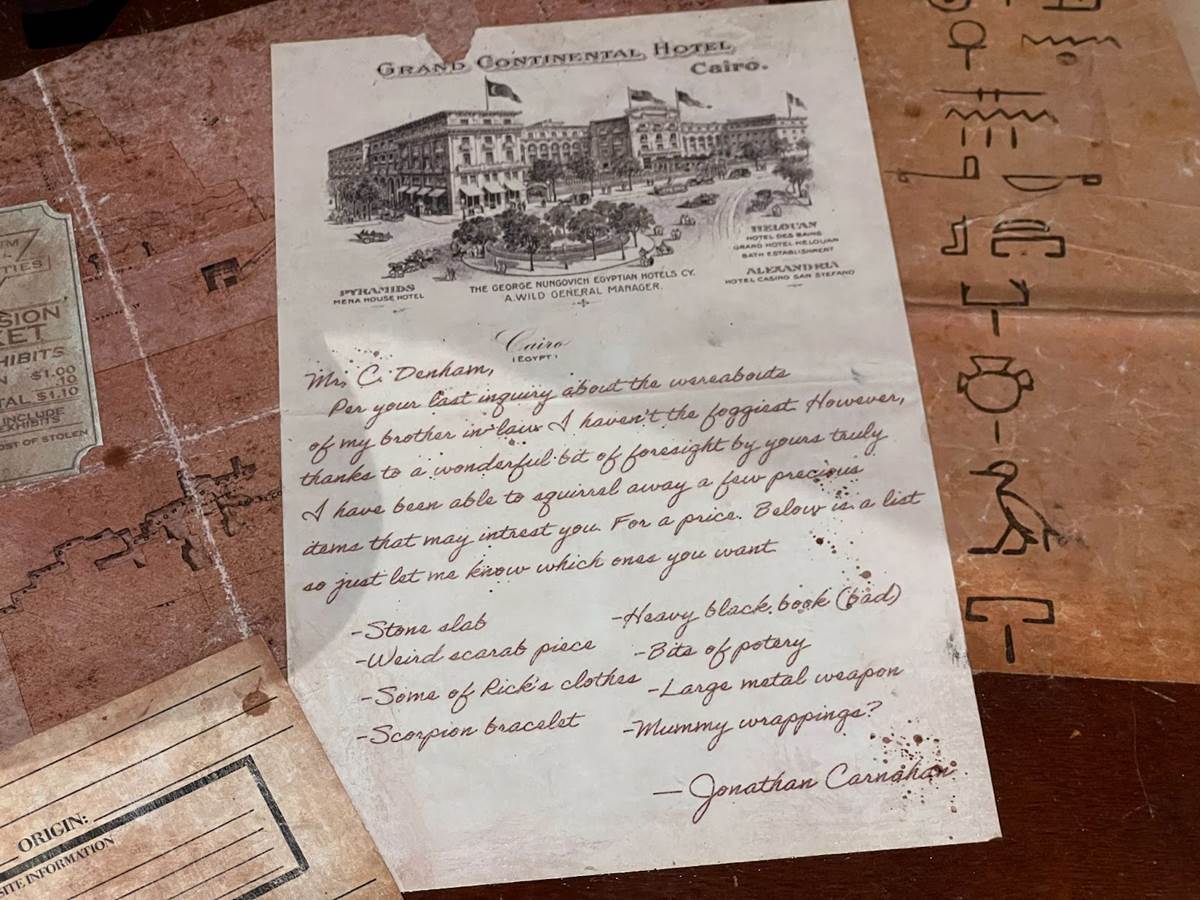 GRAND CONTINENTAL HOTEL
Cairo.
HELOUAN
HOTEL DES BAINS
GRAND HOTEL HELOUAN
BATH ESTABLISHMENT
ALEXANDRIA
HOTEL CASINO SAN STEFANO
PYRAMIDS
MENA HOUSE HOTEL
THE GEORGE NUNGOVICH EGYPTIAN HOTELS CY.
A.WILD GENERAL MANAGER.
Cairo
(EGYPT)
Mr. C. Denham,
Per your last inquiry about the wereabouts
of my brother in law I haven't the foggiest. However,
thanks to a wonderful bit of foresight by yours truly
I have been able to squirrel away a few precious
items that may intrest you. For a price. Below is a list
so just let me know which ones you want
-Stone slab
-Weird scarab piece
-Some of Rick's clothes
-Scorpion bracelet
-Heavy black book (bad)
-Bits of potery
-Large metal weapon
-Mummy wrappings?
— Jonathan Carnahan
$1.00
.10
$1.10
INCLUDE
EXHIBITS
OST OF STOLEN
ORIGIN:
SITE INFORMATION